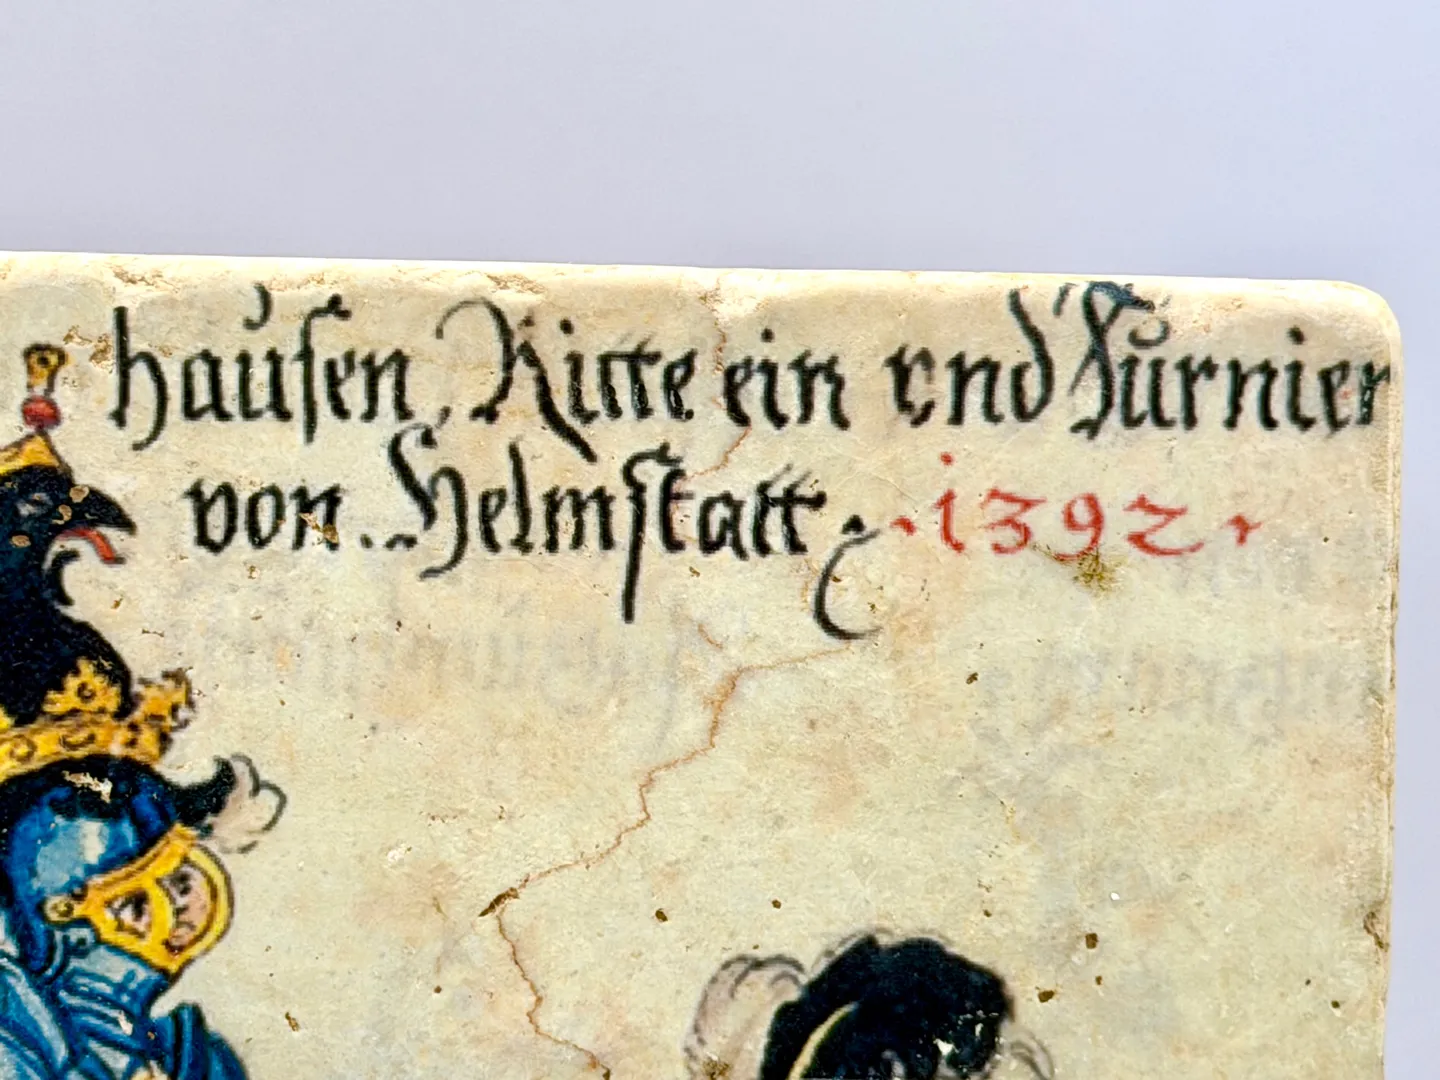 hausen, Ritte ein vnd Turnier
von Helmstatt · 1392 ·